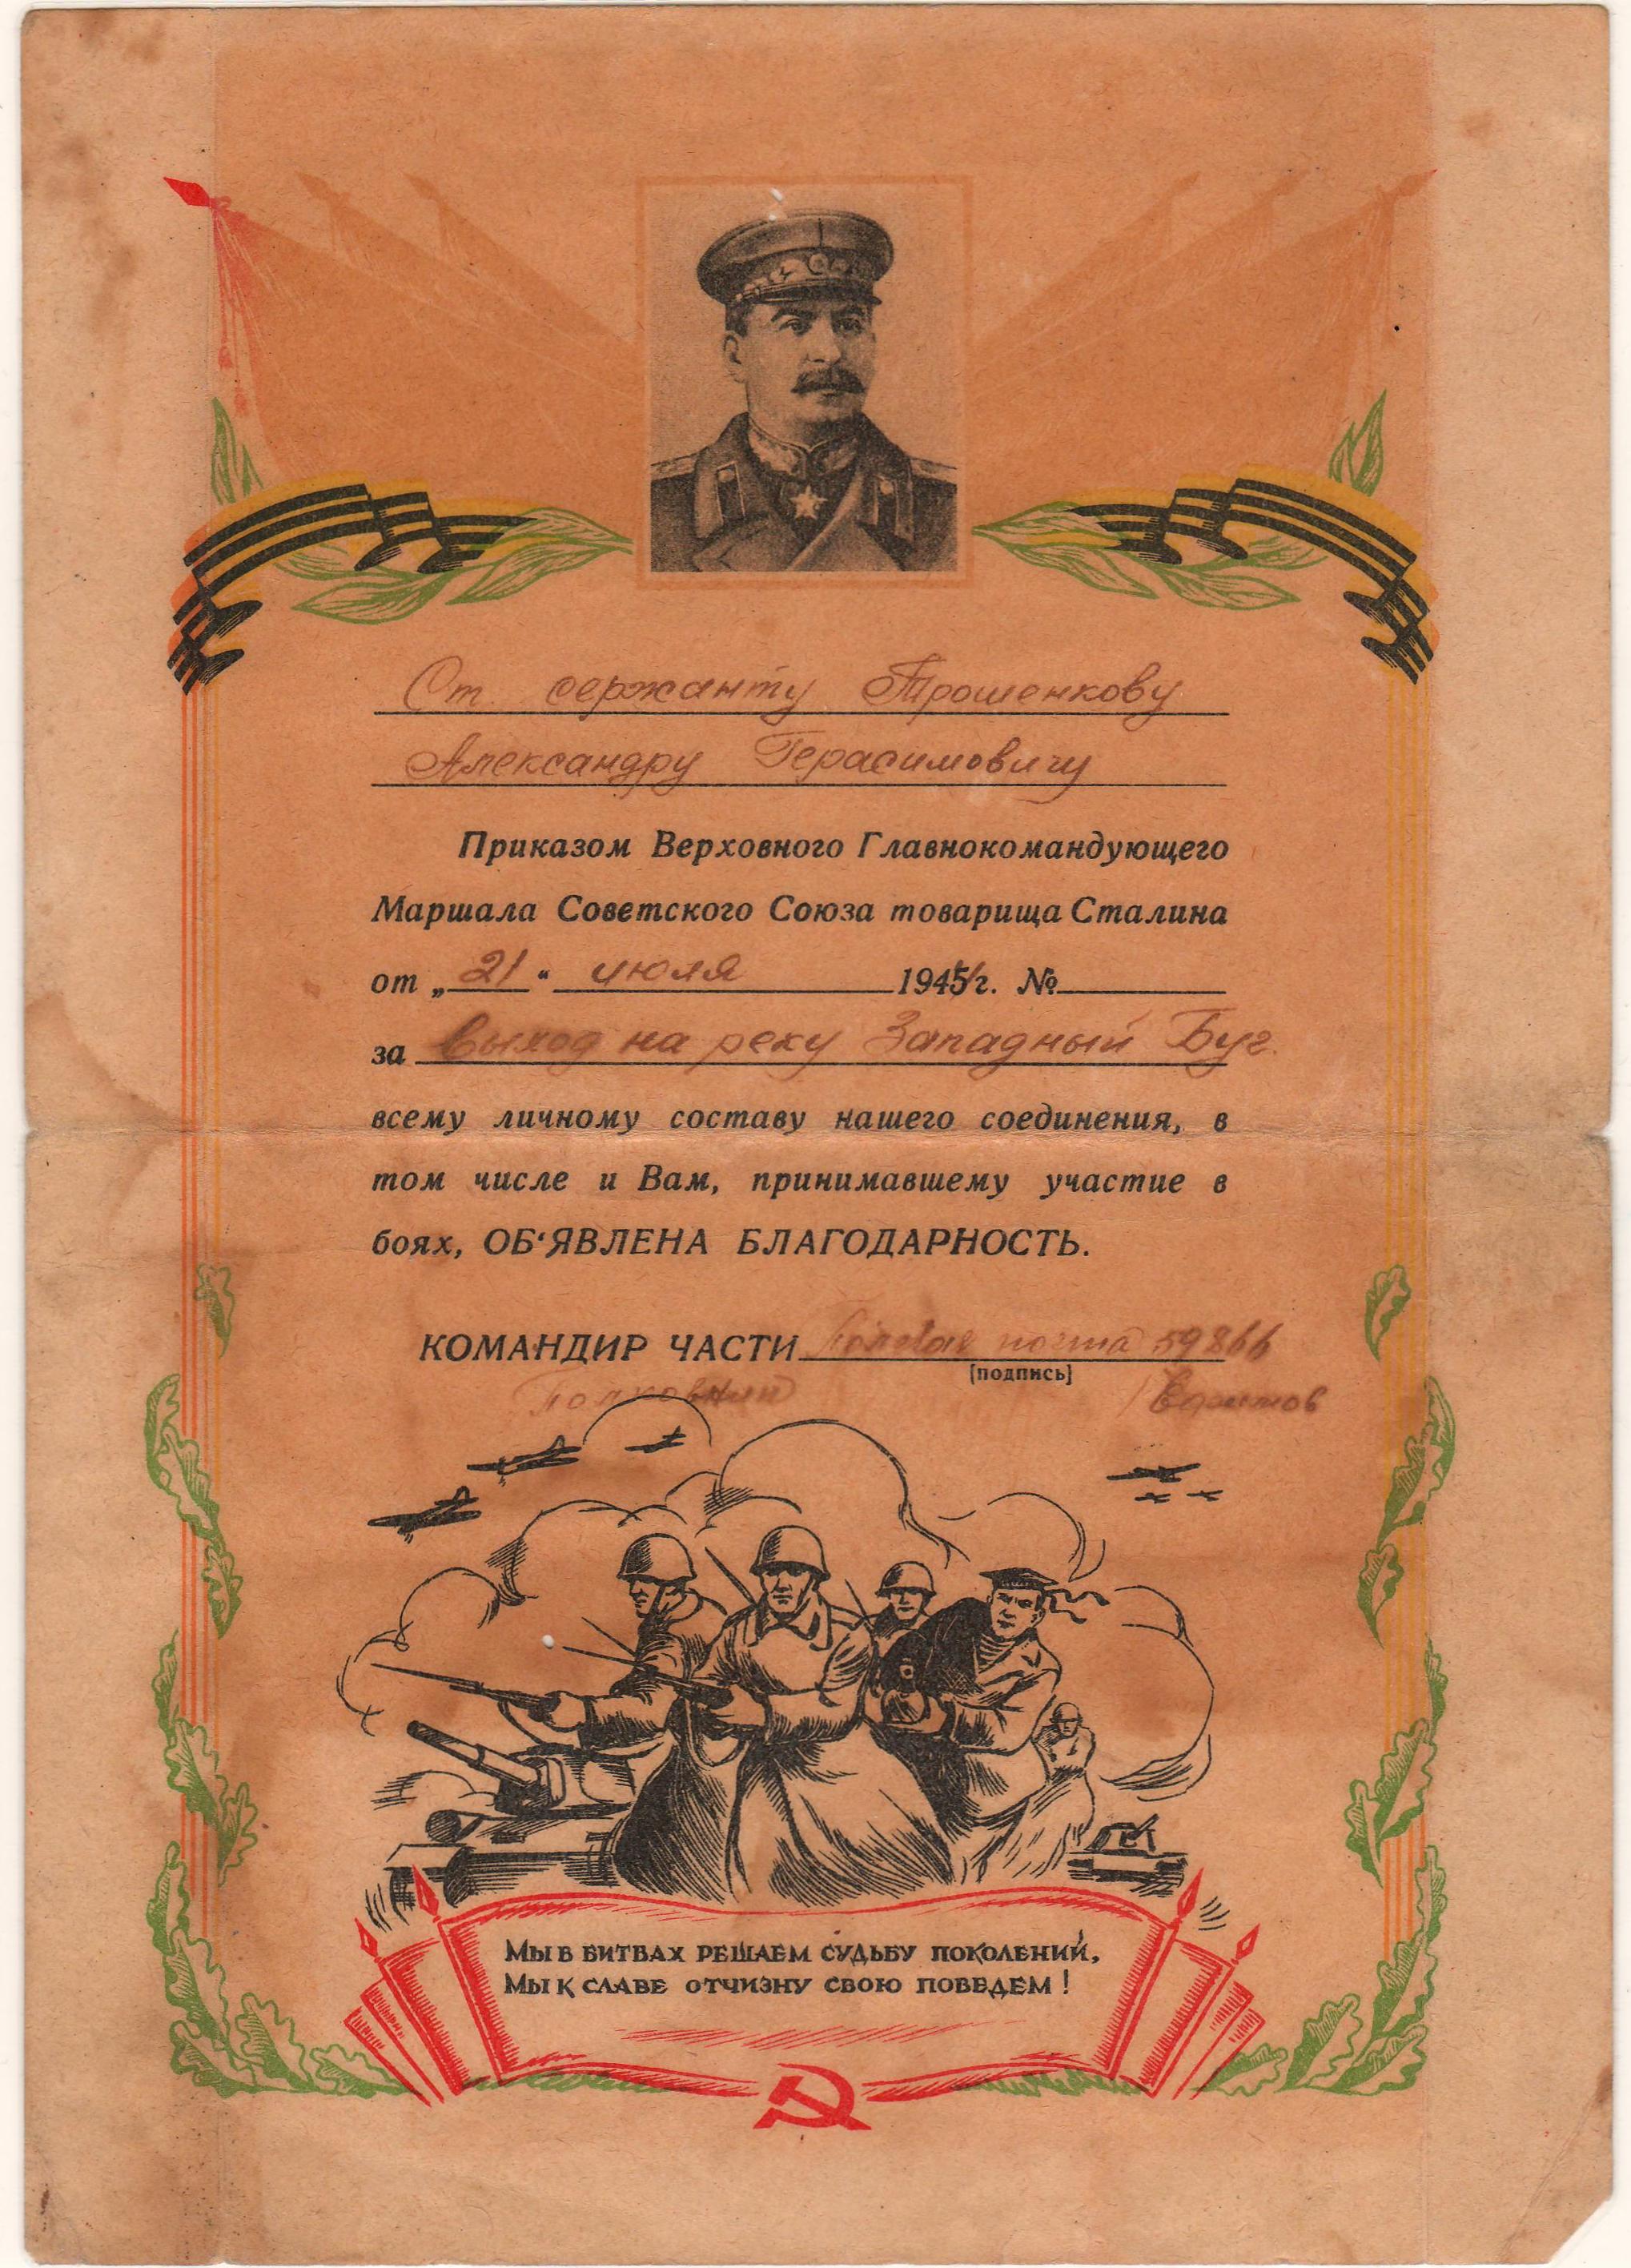 Ст. сержанту Трошенкову
Александру Герасимовичу
Приказом Верховного Главнокомандующего
Маршала Советского Союза товарища Сталина
от „21“ июля 1944г. №
за выход на реку Западный Буг.
всему личному составу нашего соединения, в
том числе и Вам, принимавшему участие в
боях, ОБ‘ЯВЛЕНА БЛАГОДАРНОСТЬ.
КОМАНДИР ЧАСТИ Полевая почта 59866
[подпись]
Полковник
МЫ В БИТВАХ РЕШАЕМ СУДЬБУ ПОКОЛЕНИЙ,
МЫ К СЛАВЕ ОТЧИЗНУ СВОЮ ПОВЕДЕМ!